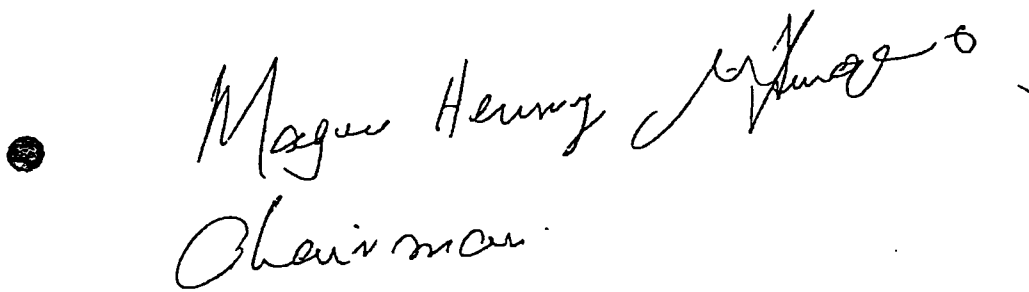 Magu Henry
Chairman.